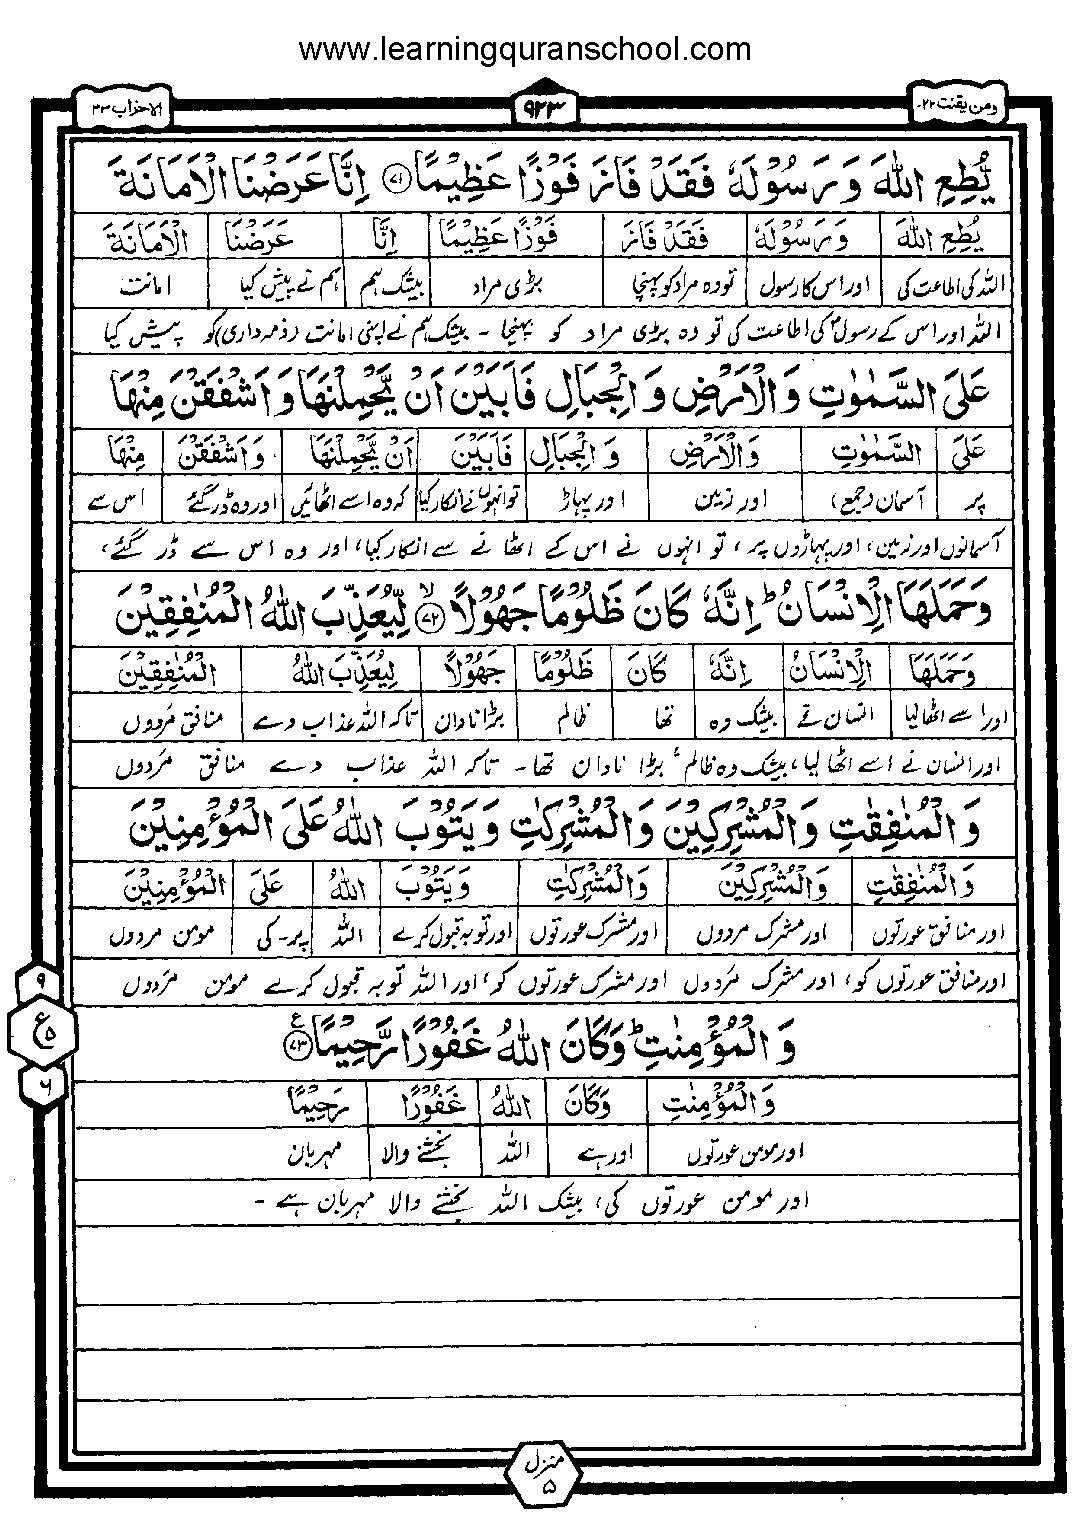 www.learningquranschool.com
ومن یقنت ۲۲- ۹۲۳ الاحزاب ۳۳
يُّطِعِ اللّٰهَ وَ رَسُوْلَهٗ فَقَدْ فَازَ فَوْزًا عَظِيْمًا ﴿۷۱﴾ اِنَّا عَرَضْنَا الْاَمَانَةَ
يُطِعِ اللّٰهَ وَرَسُوْلَهٗ فَقَدْ فَازَ فَوْزًا عَظِيْمًا اِنَّا عَرَضْنَا الْاَمَانَةَ
اللہ کی اطاعت کی اور اس کا رسول تو وہ مراد کو پہنچا بڑی مراد بیشک ہم ہم نے پیش کیا امانت
اللہ اور اس کے رسولؐ کی اطاعت کی تو وہ بڑی مراد کو پہنچا ۔ بیشک ہم نے اپنی امانت (ذمہ داری) کو پیش کیا
عَلَى السَّمٰوٰتِ وَ الْاَرْضِ وَ الْجِبَالِ فَاَبَيْنَ اَنْ يَّحْمِلْنَهَا وَ اَشْفَقْنَ مِنْهَا
عَلَى السَّمٰوٰتِ وَالْاَرْضِ وَ الْجِبَالِ فَاَبَيْنَ اَنْ يَّحْمِلْنَهَا وَ اَشْفَقْنَ مِنْهَا
پر آسمان (جمع) اور زمین اور پہاڑ تو انہوں نے انکار کیا کہ وہ اسے اٹھائیں اور وہ ڈر گئے اس سے
آسمانوں اور زمین، اور پہاڑوں پر، تو انہوں نے اس کے اٹھانے سے انکار کیا، اور وہ اس سے ڈر گئے،
وَحَمَلَهَا الْاِنْسَانُ ؕ اِنَّهٗ كَانَ ظَلُوْمًا جَهُوْلًا ﴿۷۲﴾ۙ لِّيُعَذِّبَ اللّٰهُ الْمُنٰفِقِيْنَ
وَحَمَلَهَا الْاِنْسَانُ اِنَّهٗ كَانَ ظَلُوْمًا جَهُوْلًا لِيُعَذِّبَ اللّٰهُ الْمُنٰفِقِيْنَ
اور اسے اٹھا لیا انسان نے بیشک وہ تھا ظالم بڑا نادان تاکہ اللہ عذاب دے منافق مَردوں
اور انسان نے اسے اٹھا لیا، بیشک وہ ظالم، بڑا نادان تھا ۔ تاکہ اللہ عذاب دے منافق مَردوں
وَ الْمُنٰفِقٰتِ وَ الْمُشْرِكِيْنَ وَ الْمُشْرِكٰتِ وَ يَتُوْبَ اللّٰهُ عَلَى الْمُؤْمِنِيْنَ
وَ الْمُنٰفِقٰتِ وَالْمُشْرِكِيْنَ وَالْمُشْرِكٰتِ وَيَتُوْبَ اللّٰهُ عَلَى الْمُؤْمِنِيْنَ
اور منافق عورتوں اور مشرک مردوں اور مشرک عورتوں اور توبہ قبول کرے اللہ پر۔ کی مومن مردوں
اور منافق عورتوں کو، اور مشرک مَردوں اور مشرک عورتوں کو، اور اللہ توبہ قبول کرے مومن مَردوں
۹
ع ۵
۶
وَ الْمُؤْمِنٰتِ ؕ وَكَانَ اللّٰهُ غَفُوْرًا رَّحِيْمًا ﴿۷۳﴾ ع
وَ الْمُؤْمِنٰتِ وَكَانَ اللّٰهُ غَفُوْرًا رَحِيْمًا
اور مومن عورتوں اور ہے اللہ بخشنے والا مہربان
اور مومن عورتوں کی، بیشک اللہ بخشنے والا مہربان ہے ۔
منزل ۵